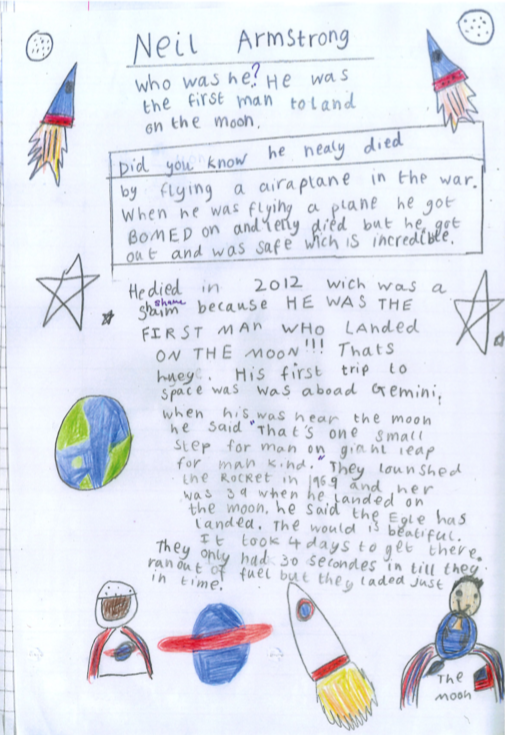 Neil Armstrong
who was he? He was
the first man to land
on the moon.
Did you know he nealy died
by flying a airaplane in the war.
When he was flying a plane he got
BOMED on and relly died but he got
out and was safe wich is incredible.
He died in 2012 wich was a
shame
because HE WAS THE
FIRST MAN WHO LANDED
ON THE MOON!!! Thats
hueye. His first trip to
space was was aboad Gemini.
when his was near the moon
he said "That's one small
step for man on giant leap
for man kind." They lounshed
the Rocket in 1969 and her
was 39 when he landed on
the moon, he said the Egle has
landed. The would is beatiful.
It took 4 days to get there.
They only had 30 secondes in till they
ran out of fuel but they laded just
in time.
The
moon